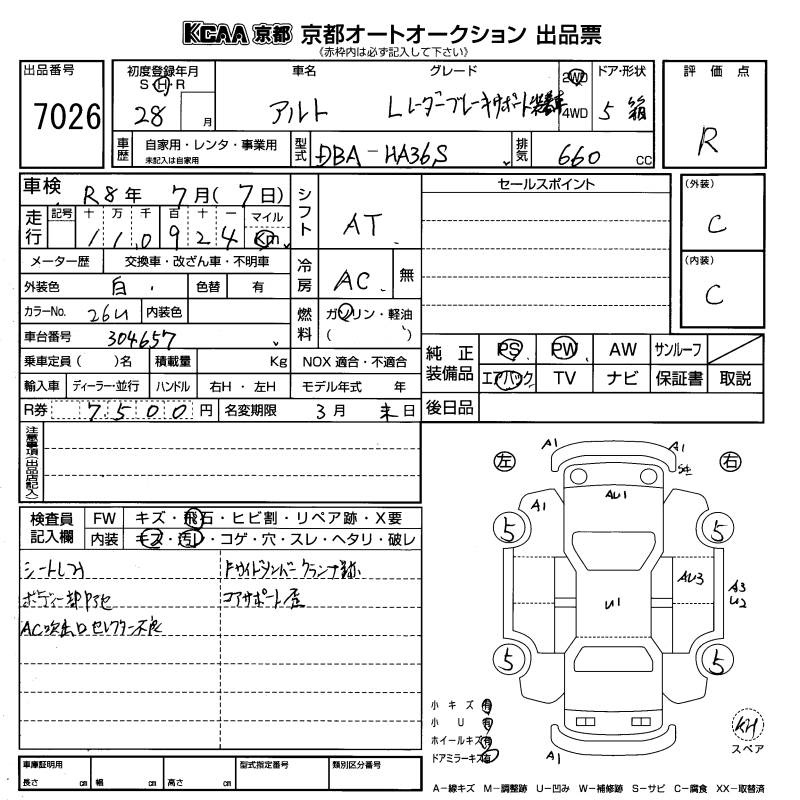 KCAA 京都 京都オートオークション 出品票
《赤枠内は必ず記入して下さい》
出品番号 7026
初度登録年月 S・H・R 28 月
車名 アルト
グレード Lレーダーブレーキサポート装着車
2WD 4WD
ドア・形状 5 箱
評価点 R
車歴 自家用・レンタ・事業用 未記入は自家用
型式 DBA-HA36S
排気 660 CC
車検 R8年 7月(7日)
走行 記号 十 万 千 百 十 一 マイル Km
110924
シフト AT
メーター歴 交換車・改ざん車・不明車
外装色 白 色替 有
冷房 AC 無
カラーNo. 26U 内装色
燃料 ガソリン・軽油 ( )
車台番号 304657
乗車定員( )名 積載量 Kg NOX 適合・不適合
輸入車 ディーラー・並行 ハンドル 右H・左H モデル年式 年
R券 7500円 名変期限 3月 末日
セールスポイント
(外装) C
(内装) C
純正装備品 PS PW AW サンルーフ
エアバック TV ナビ 保証書 取説
後日品
注意事項(出品店記入)
検査員記入欄 FW キズ・飛石・ヒビ割・リペア跡・X要
内装 キズ・汚レ・コゲ・穴・スレ・ヘタリ・破レ
シートしみ
AC吹出口セレクター不良
コアサポート歪
左 右
A1 A1
A1 AU1
5 5
AU3 A3
U2
U1
5 5
A1
小キズ 有
小U 有
ホイールキズ 有
ドアミラーキズ 有
KH
スペア
車庫証明用 長さ cm 幅 cm 高さ cm
型式指定番号 類別区分番号
A-線キズ M-調整跡 U-凹み W-補修跡 S-サビ C-腐食 XX-取替済